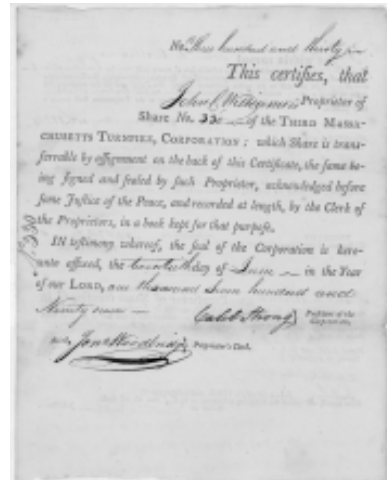 No. three hundred and thirty
This certifies, that
John C Williams, Proprietor of
Share No. 330 of the THIRD MASSA-
CHUSETTS TURNPIKE, CORPORATION; which Share is trans-
ferrable by assignment on the back of this Certificate, the same be-
ing signed and sealed by such Proprietor, acknowledged before
some Justice of the Peace, and recorded at length, by the Clerk of
the Proprietors, in a book kept for that purpose.
IN testimony whereof, the seal of the Corporation is here-
unto affixed, the twentieth day of June in the Year
of our LORD, one thousand seven hundred and
Ninety seven
Caleb Strong President of the
Corporation.
Jona Woodbridge Proprietor's Clerk.
330